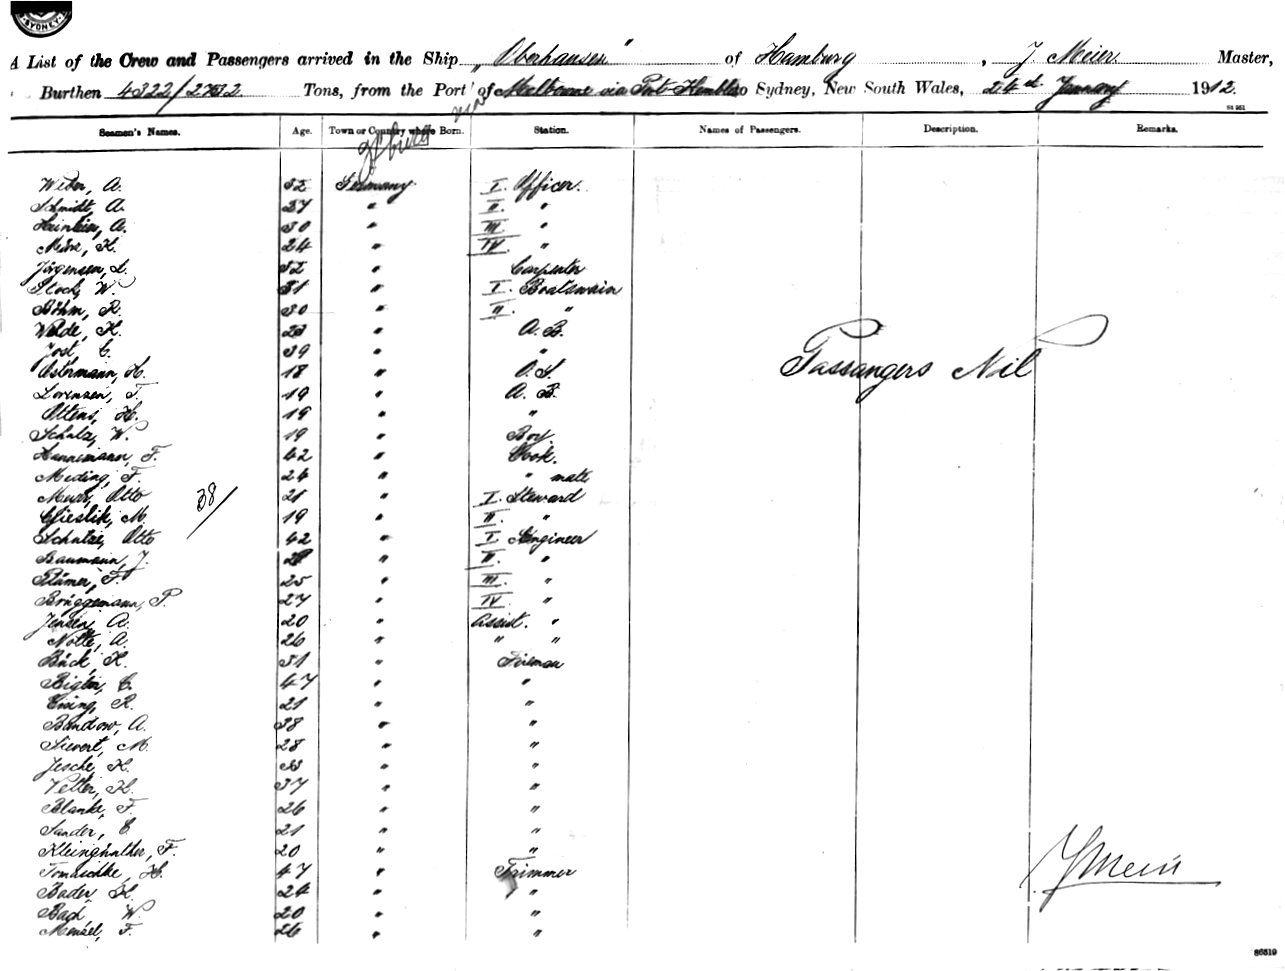 SYDNEY
A List of the Crew and Passengers arrived in the Ship „Oberhausen" of Hamburg, J Meier Master,
Burthen 4322/2732 Tons, from the Port of Melbourne via Port Kembla to Sydney, New South Wales, 24th January 1912.
St 951
Seamen's Names. Age. Town or Country where Born. Station. Names of Passengers. Description. Remarks.
Weber, A. 32 Germany I. Officer.
Schmidt, A. 27 " II. "
A. 30 " III. "
H. 24 " IV. "
Jörgensen, L. 32 " Carpenter
Plock, W. 31 " I. Boatswain
Böhm, R. 30 " II. "
Welde, H. 23 " A. B.
Jost, C. 39 " "
Ostermann, H. 18 " O. S.
Lorenzen, F. 19 " A. B.
Ottens, H. 19 " "
Schulz, W. 19 " Boy.
Hannemann, F. 42 " Cook.
Meding, F. 24 " " mate
Otto 21 " I. Steward
Cieslik, M. 19 " II. "
Schulze, Otto 42 " I. Engineer
Baumann, J. " II. "
F. 25 " III. "
Brüggemann, P. 27 " IV. "
Jensen, A. 20 " Assist. "
Nolte, A. 26 " " "
Bäck, H. 31 " Fireman
C. 47 " "
Eising, R. 21 " "
Bandow, A. 38 " "
Sievert, M. 28 " "
Jesche, H. 33 " "
Vetter, H. 37 " "
Blanke, F. 26 " "
Sander, E 21 " "
Kleingünther, F. 20 " "
Tomaschke, H. 47 " Trimmer
Bader, H. 24 " "
Bach W 20 " "
Mensel, F. 26 " "
38/
Passangers Nil
J Meier
86519